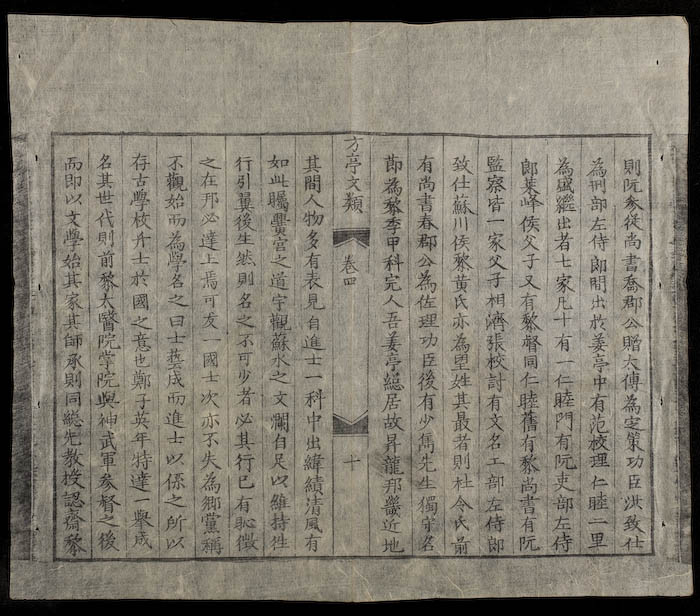 則阮參從尚書喬郡公贈太傅為定策功臣洪致仕
為刑部左侍郎間出於姜亭中有范校理仁睦二里
為盛繼出者七家凡十有一仁睦門有阮吏部左侍
郎萊峰侯父子又有黎督同仁睦舊有黎尚書有阮
監察皆一家父子相濟張校討有文名工部左侍郎
致仕蘇川侯黎黄氏亦為望姓其最者則杜令氏前
有尚書春郡公為佐理功臣後有少雋先生獨守名
節為黎季甲科完人吾姜亭總居故昇龍邦畿近地
方亭文類 卷四 十
其間人物多有表見自進士一科中出緯績清風有
如此矚黌宮之道字觀蘇水之文瀾自足以維持徃
行引翼後生然則名之不可少者必其行已有恥徵
之在邦必達上焉可友一國士次亦不失為鄉黨稱
不觀始而為學名之曰士藝成而進士以係之所以
存古學校升士於國之意也鄭子英年特達一舉成
名其世代則前黎太醫院掌院與神武軍參督之後
而即以文學始其家其師承則同總先教授認齋黎